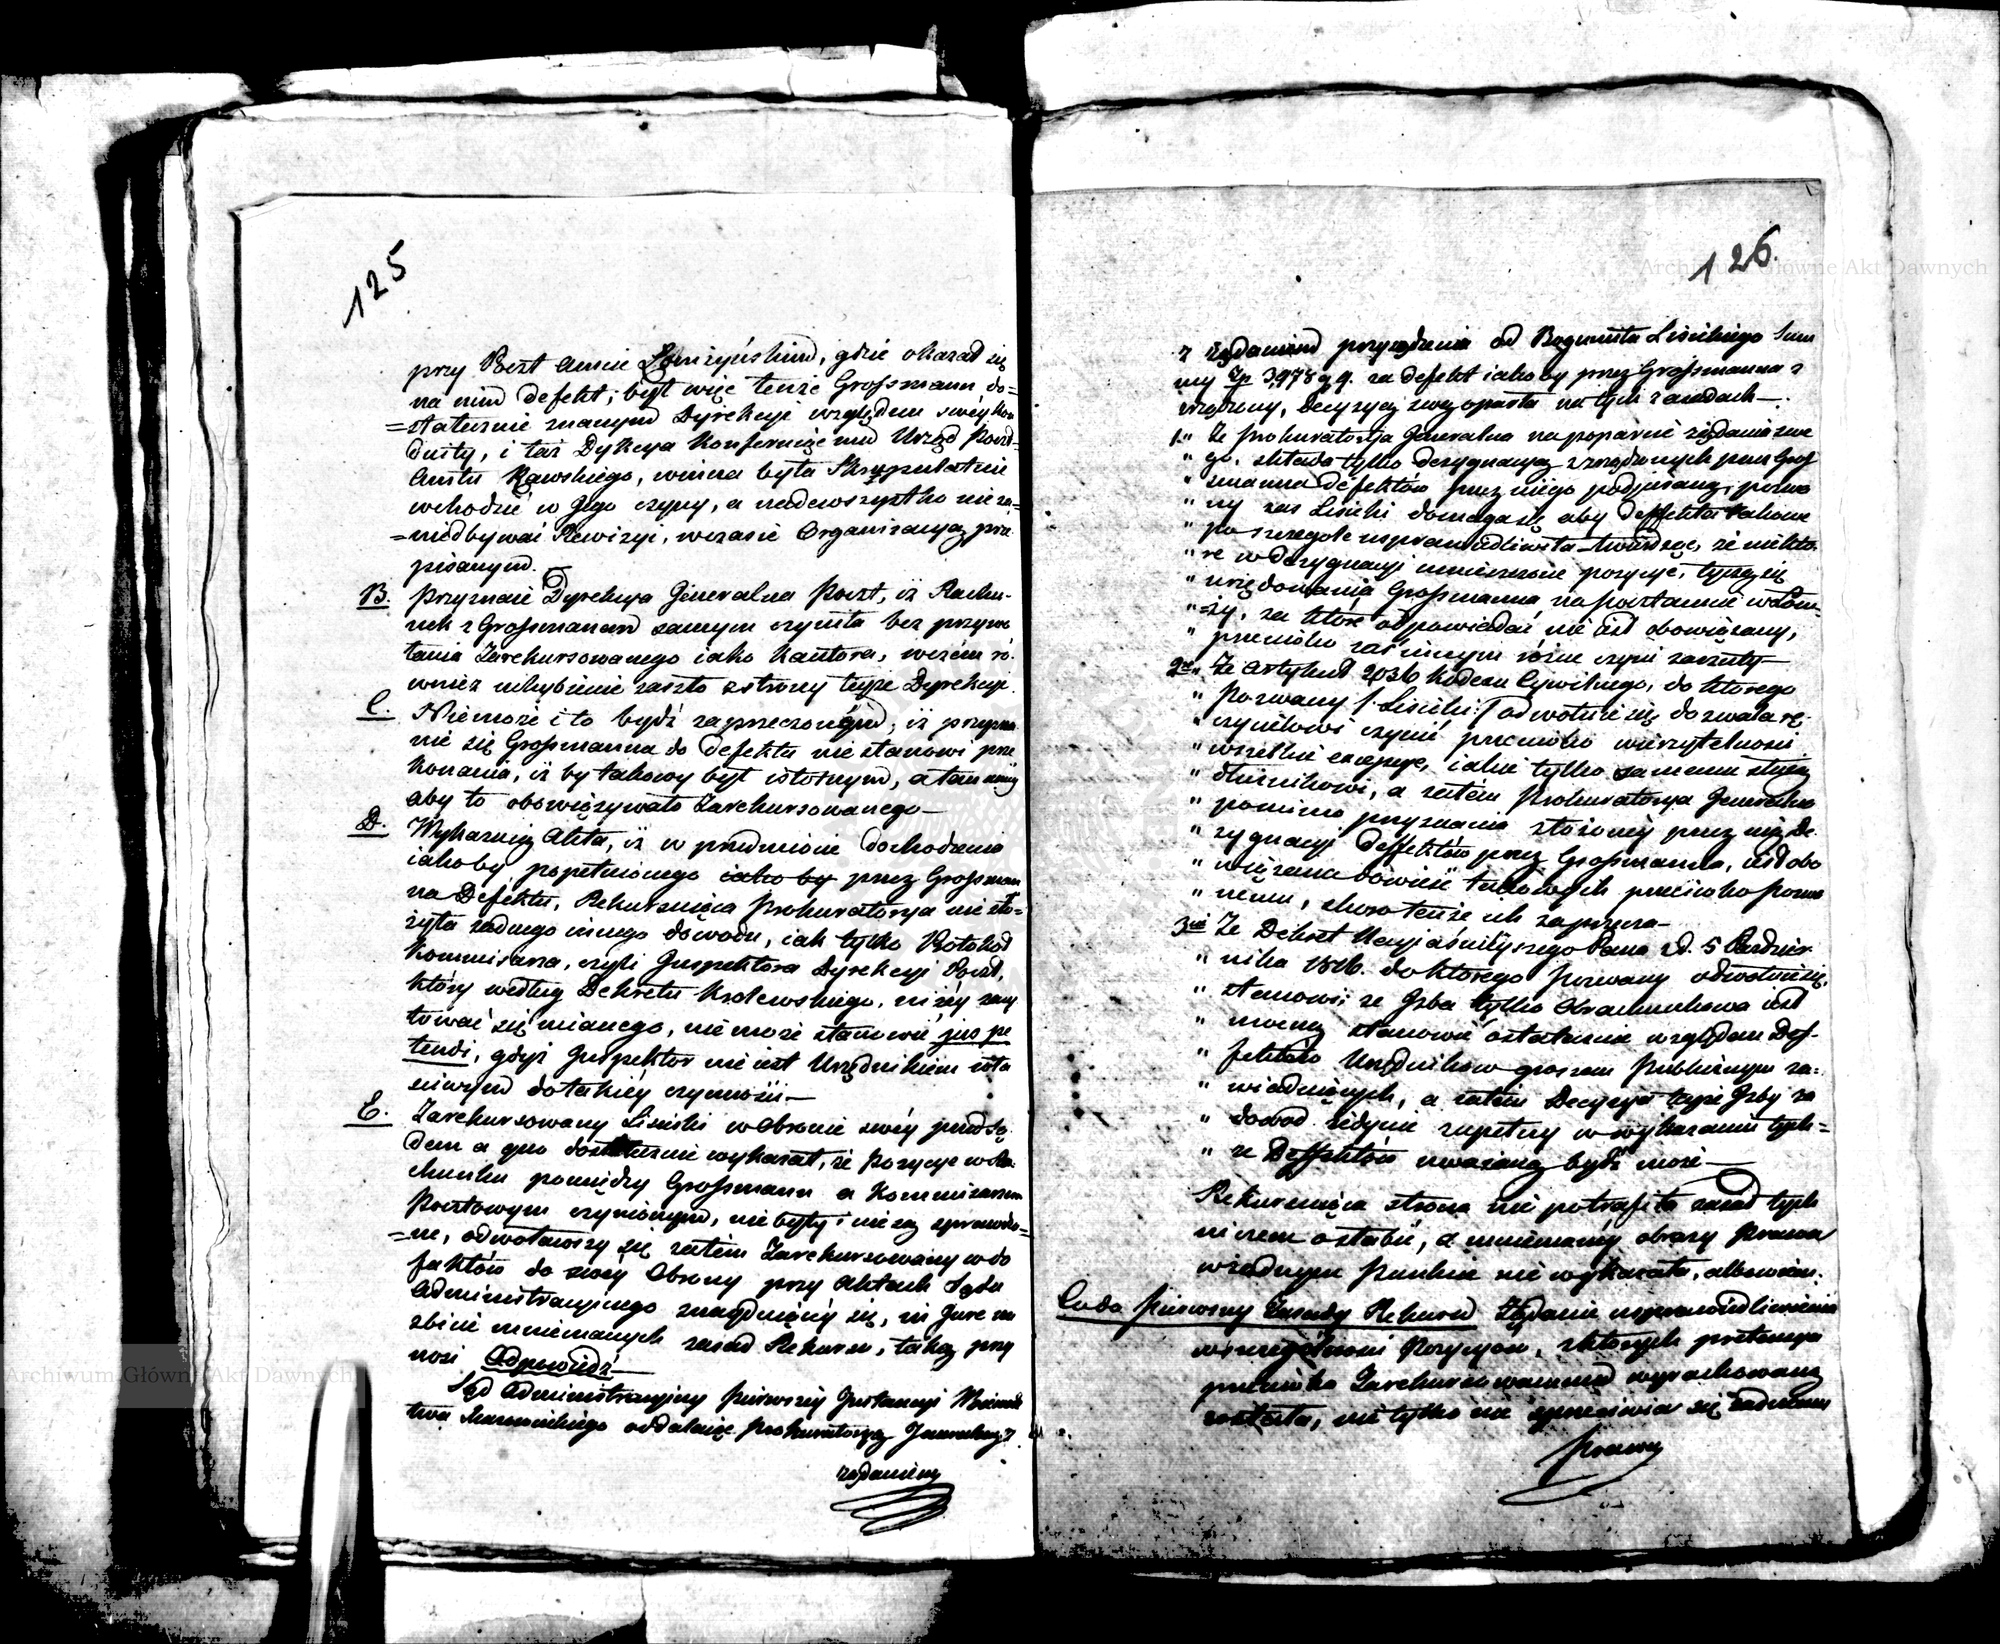 125
przy Poczt Amcie Łomżyńskim, gdzie okazał się
na nim defekt; był więc tenże Großmann do=
=statecznie znanym Dyrekcyi względem swéy kon
duity, i taż Dyrekcya konferuiąc mu Urząd Poczt
Amtu Rawskiego, winna była Skrupulatnie
wchodzić w Jego czyny, a nadewszystko nie za=
=niedbywać Rewizyi, w czasie Organizacyą prze
pisanym.
B. Przyznaie Dyrekcya Generalna Poczt, iż Rachu-
nek z Großmanem samym czyniła bez przywo
łania Zarekursowanego iako Kautora, w czém ró-
wnież uchybienie zaszło z strony teyże Dyrekcyi.
C. Niemoże i to bydź zaprzeczonym, iż przyzna
nie się Großmanna do defektu nie stanowi prze
konania, iż by takowy był istotnym, a tem mniéy
aby to obowięzywało Zarekursowanego—
D. Wykazuią Akta, iż w przedmiocie dochodzenia
iakoby popełnionego iako by przez Großman
na Defektu, Rekursuiąca Prokuratorya nie zło=
żyła żadnego innego dowodu, iak tylko Protokół
Kommisarza, czyli Inspektora Dyrekcyi Poczt,
który według Dekretu Królewskiego, niżéy zacy
tować się mianego, nie może stanowić jus pe
tendi, gdyż Inspektor nie iest Urzędnikiem wła
ściwym do takiéy czynności—
E. Zarekursowany Lisiecki w Obronie swéy przed Są
dem a quo dostatecznie wykazał, że Pozycye w Ra
chunku pomiędzy Großmann a Kommisarzem
Pocztowym czynionym, nie były i nie są sprawdzo=
=ne, odwoławszy się zatem Zarekursowany w do
faktów do swéy Obrony przy Aktach Sądu
Administracyinego znayduiącéy się, in Jure na
zbicie mniemanych zasad Rekursu, taką przy
nosi Odpowiedź—
Sąd Administracyiny Pierwszéy Instancyi Woiewodz
twa Mazowieckiego oddalaiąc Prokuratoryą Jeneralną z
żądaniem
126.
z żądaniem przysądzenia od Bogumiła Lisickiego Sum
my Zp 3,978 g 9. za defekt iakoby przez Großmanna z
rządzony, Decyzyą swą oparła na tych zasadach—.
1. " Że Prokuratorya Generalna na poparcie żądania swe
" go, składa tylko dezygnacyą zrządzonych przez Groß
" manna defektów przez niego podpisaną, pozwa
" ny zaś Lisicki domaga się aby Deffekta takowe
" poszczególe usprawiedliwiła twierdząc, że niektó
" re w dezygnacyi umieszczone pozycye, tyczą się
" urzędowania Großmanna na Pocztamcie w Łom-
" =ży, za które odpowiadać nie iest obowiązany,
" przeciwko zaś innym różne czyni zarzuty—
2re " Że Artykuł 2036 Kodexu Cywilnego, do którego
" Pozwany /: Lisicki :/ odwołuie się, dozwala rę-
" czycielowi czynić przeciwko wierzytelności
" wszelkie excepcye, iakie tylko samemu służą
" dłużnikowi, a zatém Prokuratorya Generalna
" pomimo przyznania złożonéy przez nią De
" zygnacyi Deffektów przez Großmanna, iest obo
" wiązana dowieść takowych przeciwko Pozwa
" nemu, skoro tenże ich zaprzecza—
3cie " Że Dekret Nayjaśnieyszego Pana z d. 5 Paździer
" nika 1816. do którego Pozwany odwołuie się,
" stanowi, że Izba tylko Obrachunkowa iest
" mocną stanowić ostatecznie względem Def-
" fektów Urzędników groszem Publicznym za=
" wiaduiących, a zatém Decyzya teyże Izby za
" dowód iedynie zupełny w wykazaniu tych=
" że Deffektów uważaną bydź może—
Rekursuiąca strona nie potrafiła zasad tych
niczem osłabić, a mniemanéy obrazy Prawa
w żadnym punkcie nie wykazała, albowiem:
Co do pierwszéy Zasady Rekursu Żądanie usprawiedliwienia
w szczególności Pozycyów, z których pretensya
przeciwko Zarekursowanemu wyrachowaną
została, nie tylko nie sprzeciwia się żadnemu
Prawu